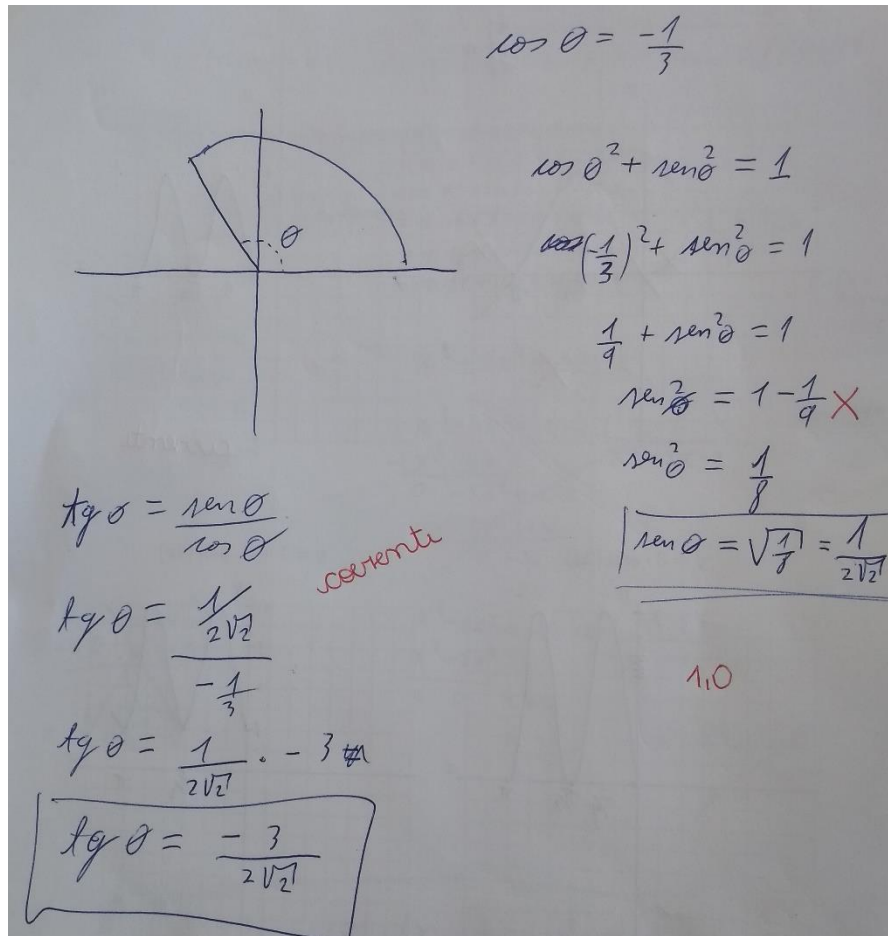 cos θ = -1/3
θ
cos θ² + sen²θ = 1
(-1/3)² + sen²θ = 1
1/9 + sen²θ = 1
sen²θ = 1 - 1/9 X
sen²θ = 1/8
sen θ = √1/8 = 1/2√2
1,0
tg θ = sen θ/cos θ
coerente
tg θ = 1/2√2/-1/3
tg θ = 1/2√2 . - 3
tg θ = - 3/2√2